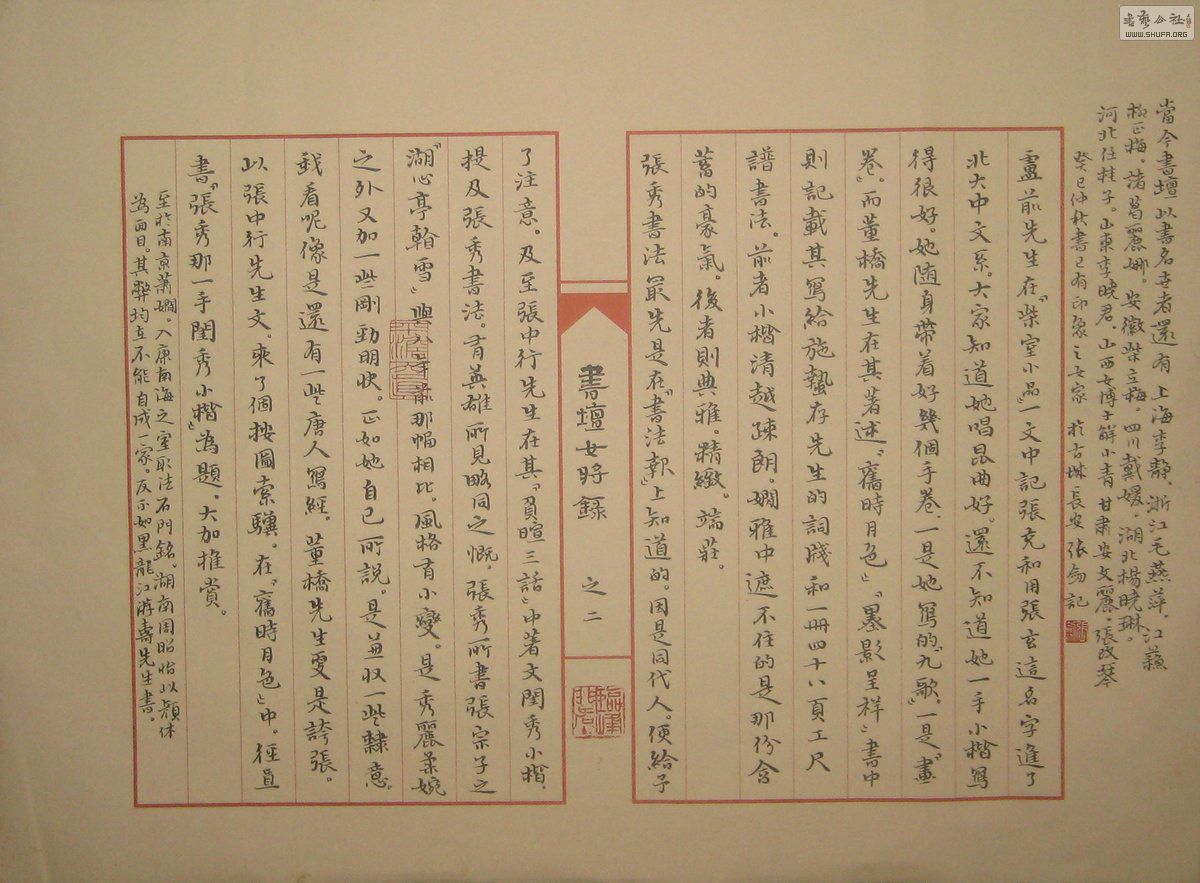 盧前先生在『柴室小品』一文中記張充和用張玄這名字進了
北大中文系。大家知道她唱昆曲好。還不知道她一手小楷寫
得很好。她随身带着好幾個手卷。一是她寫的『九歌』。一是『畫
卷』。而董橋先生在其著述『舊時月色』『墨影呈祥』書中
則記載其寫給施蟄存先生的詞牋和一冊四十八頁工尺
譜書法。前者小楷清越疎朗。嫻雅中遮不住的是那份含
蓄的豪氣。後者則典雅。精緻。端莊。
張秀書法最先是在『書法報』上知道的。因是同代人。便給予
書壇女將錄 之二
了注意。及至張中行先生在其『負暄三話』中著文閨秀小楷。
提及張秀書法。有英雄所見略同之慨。張秀所書張宗子之
『湖心亭翰雪』與 那幅相比。風格有小變。是秀麗柔婉
之外又加一些剛勁明快。正如她自己所說。是兼収一些隸意。
我看呢像是還有一些唐人寫經。董橋先生更是誇張。
以張中行先生文。來了個按圖索驥。在『舊時月色』中。徑直
書『張秀那一手閨秀小楷』為題。大加推賞。
至於南京蕭嫻。入康南海之室取法石門銘。湖南周昭怡以顏体
為面目。其弊均在不能自成一家。反不如黑龍江游壽先生書。
當今書壇以書名世者還有上海李静。浙江毛燕萍。江蘇
楊正梅。諸葛麗娜。安徽柴立梅。四川戴媛。湖北楊曉琳。
河北任桂子。山東李曉君。山西女博士解小青 甘肅安文麗。張改琴
癸巳仲秋書已有印象之女家 於古城長安張 記
WWW.SHUFA.ORG